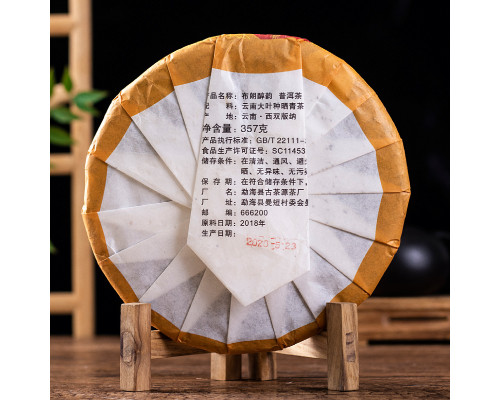 产品名称: 布朗醇韵 普洱茶
配 料: 云南大叶种晒青茶
产 地: 云南·西双版纳
净含量: 357克
产品执行标准: GB/T 22111-
食品生产许可证号: SC11453
储存条件: 在清洁、通风、避
晒、无异味、无污
保 存 期: 在符合储存条件下,
厂 名: 勐海县古茶源茶厂
厂 址: 勐海县曼短村委会曼
邮 编: 666200
原料日期: 2018年
生产日期: